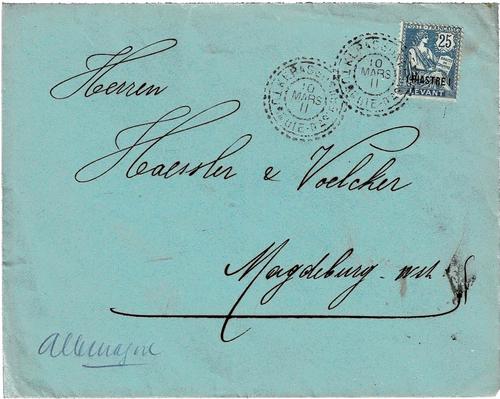 POSTE FRANÇAISE
25
1 PIASTRE 1
LEVANT
10
MARS
11
10
MARS
11
Herren
Haessler & Voelcker
Magdeburg
Allemagne